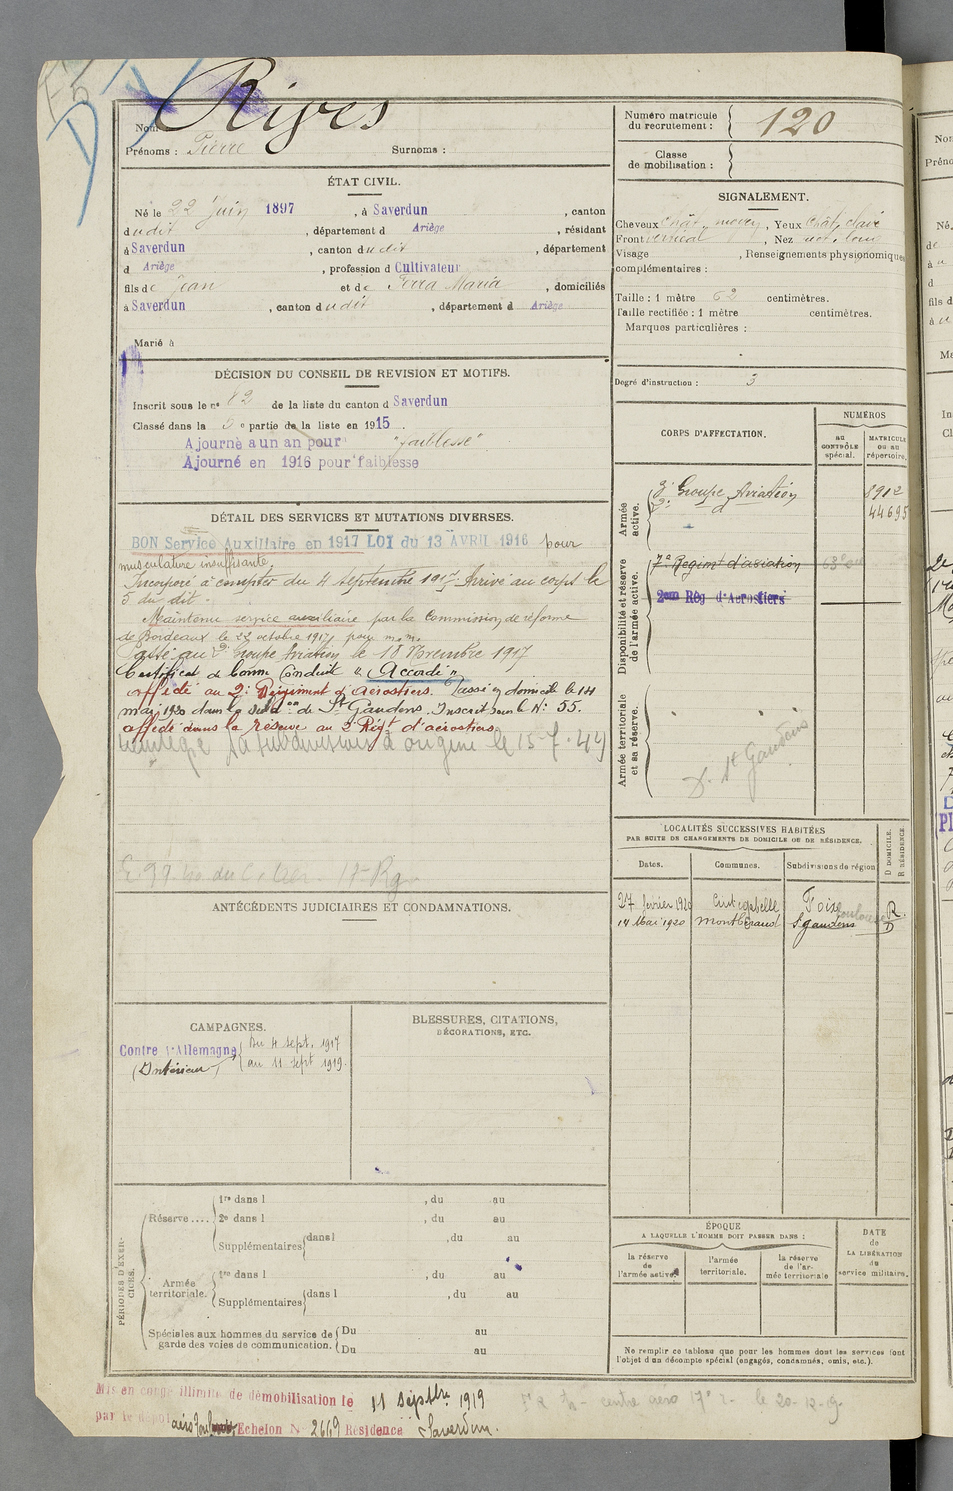 Rives
Nom
Prénoms : Pierre Surnoms :
Numéro matricule du recrutement : 120
Classe de mobilisation :
ÉTAT CIVIL.
Né le 22 Juin 1897, à Saverdun, canton
dudit, département d Ariège, résidant
à Saverdun, canton dudit, département
d Ariège, profession d Cultivateur
fils de Jean et de Maria, domiciliés
à Saverdun, canton dudit, département d Ariège
Marié à
SIGNALEMENT.
Cheveux chât. moyen, Yeux chât. clair
Front vertical, Nez
Visage , Renseignements physionomiques
complémentaires :
Taille : 1 mètre 62 centimètres.
Taille rectifiée : 1 mètre centimètres.
Marques particulières :
Degré d'instruction : 3
DÉCISION DU CONSEIL DE REVISION ET MOTIFS.
Inscrit sous le n° 82 de la liste du canton d Saverdun
Classé dans la 5e partie de la liste en 1915.
Ajourné a un an pour "faiblesse"
Ajourné en 1916 pour faiblesse
DÉTAIL DES SERVICES ET MUTATIONS DIVERSES.
BON Service Auxiliaire en 1917 LOI du 13 AVRIL 1916 pour
musculature insuffisante.
Incorporé à compter du 4 septembre 1917. Arrivé au corps le
5 du dit.
Maintenu service auxiliaire par la Commission de réforme
de Bordeaux le 22 octobre 1917 pour m.m.
Passé au 2e Groupe Aviation le 18 Novembre 1917
Certificat de bonne Conduite "Accordé"
affecté au 2e Régiment d'aérostiers. Passé en domicile le 14
mai 1920 dans la subdon de St Gaudens. Inscrit sous le N° 55.
affecté dans la réserve au 2e Rigt d'aérostiers
sa subdivision d'origine le 15-7-44
CORPS D'AFFECTATION.
NUMÉROS
au CONTRÔLE spécial.
MATRICULE ou au répertoire.
Armée active.
3e Groupe Aviation 8912
2e d° 44695
Disponibilité et réserve de l'armée active.
7e Régimt d'aviation
2em Rég d'Aérostiers
Armée territoriale et sa réserve.
D. St Gaudens
LOCALITÉS SUCCESSIVES HABITÉES
PAR SUITE DE CHANGEMENTS DE DOMICILE OU DE RÉSIDENCE.
Dates. Communes. Subdivisions de région
D DOMICILE.
R RÉSIDENCE.
27 février 1920 Cintegabelle Foix Toulouse R.
14 Mai 1920 Montbéraud St gaudens D
ANTÉCÉDENTS JUDICIAIRES ET CONDAMNATIONS.
CAMPAGNES.
Contre l'Allemagne { Du 4 sept. 1917
(Intérieur) au 11 sept 1919.
BLESSURES, CITATIONS,
DÉCORATIONS, ETC.
PÉRIODES D'EXERCICES.
Réserve....
1re dans l , du au
2e dans l , du au
Supplémentaires dans l , du au
Armée territoriale.
1re dans l , du au
Supplémentaires dans l , du au
Spéciales aux hommes du service de garde des voies de communication.
Du au
Du au
ÉPOQUE
A LAQUELLE L'HOMME DOIT PASSER DANS :
la réserve de l'armée active.
l'armée territoriale.
la réserve de l'armée territoriale
DATE de LA LIBÉRATION du service militaire.
Ne remplir ce tableau que pour les hommes dont les services font
l'objet d'un décompte spécial (engagés, condamnés, omis, etc.).
Mis en congé illimité de démobilisation le 11 Septbre 1919
par le dépôt Echelon N° 2669 Résidence Saverdun.
centre aéro 17e le 20-12-19.